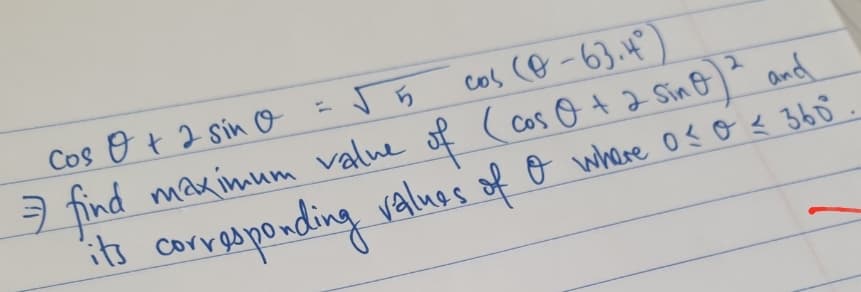 cos θ + 2 sin θ = √5 cos (θ - 63.4°)
⇒ find maximum value of (cos θ + 2 sin θ)² and
its corresponding values of θ where 0 ≤ θ ≤ 360°.